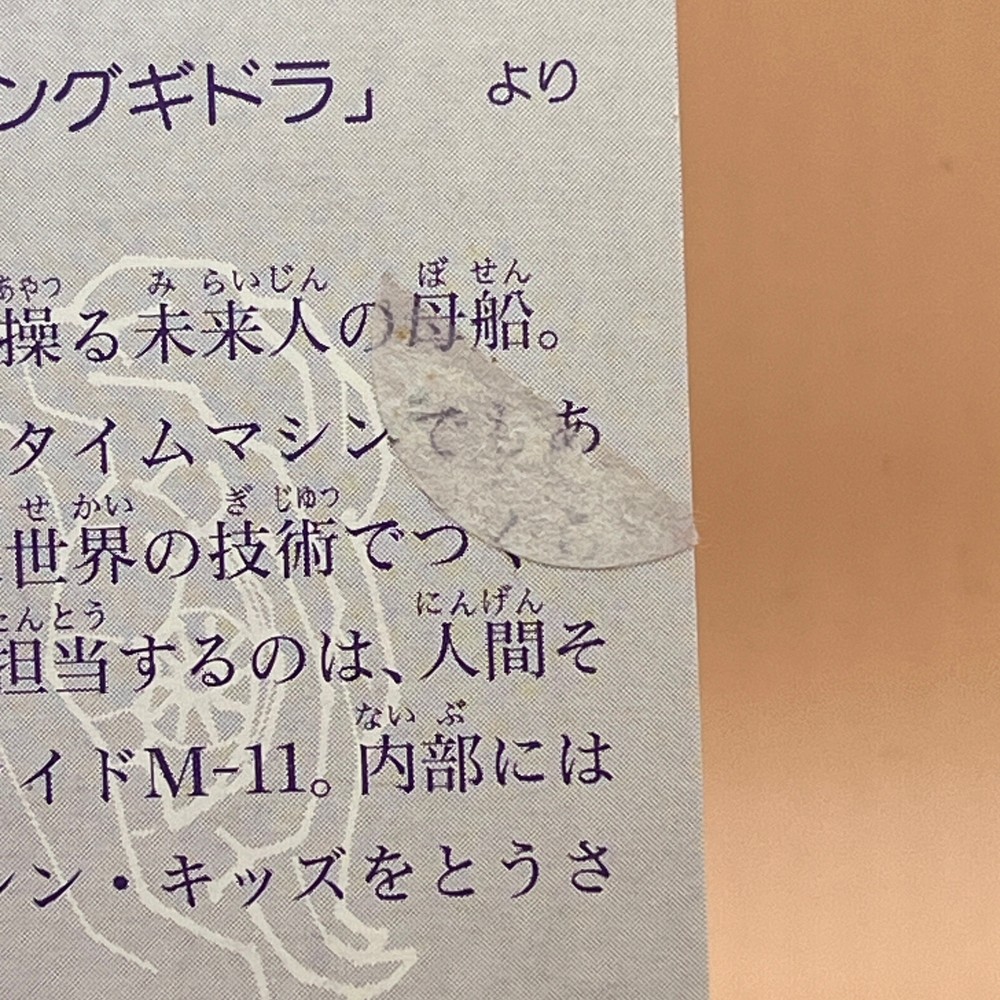 ングギドラ」 より
あやつ み らいじん ぼ せん
操る未来人の母船。
タイムマシンでもあ
せ かい ぎ じゅつ
世界の技術でつ
たんとう にんげん
担当するのは、人間そ
ない ぶ
イドM-11。内部には
ン・キッズをとうさ